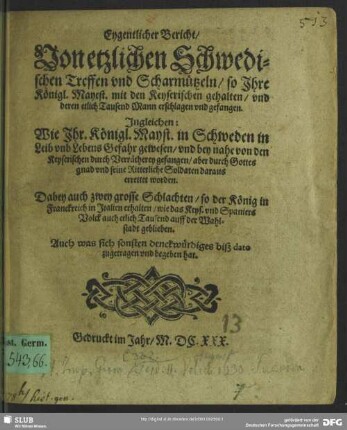 513
Eygentlicher Bericht/
Von etzlichen Schwedi-
schen Treffen vnd Scharmützeln/ so Ihre
Königl. Mayest. mit den Keyserischen gehalten/ vnd
deren etlich Tausend Mann erschlagen vnd gefangen.
Ingleichen:
Wie Ihr. Königl. Mayst. in Schweden in
Leib vnd Lebens Gefahr gewesen/ vnd bey nahe von den
Keyserischen durch Verrätherey gefangen/ aber durch Gottes
gnad vnd seine Ritterliche Soldaten daraus
errettet worden.
Dabey auch zwey grosse Schlachten/ so der König in
Franckreich in Italien erhalten/ wie das Keys. vnd Spaniers
Volck auch etlich Tausend auff der Wahl-
stadt geblieben.
Auch was sich sonsten denckwürdiges biß dato
zugetragen vnd begeben hat.
Hist. Germ.
543,66.
13
Gedruckt im Jahr/ M. DC. XXX.
SLUB
Wir führen Wissen.
gefördert von der
DFG
Deutschen Forschungsgemeinschaft